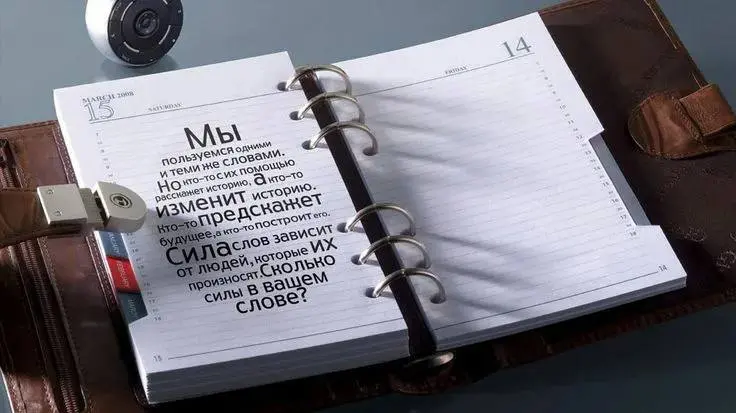 MARCH 2008
15
SATURDAY
Мы
пользуемся одними
и теми же словами.
Но кто-то с их помощью
расскажет историю, а кто-то
изменит историю.
Кто-то предскажет
будущее, а кто-то построит его.
Сила слов зависит
от людей, которые их
произносят. Сколько
силы в вашем
слове?
15
14
FRIDAY
14